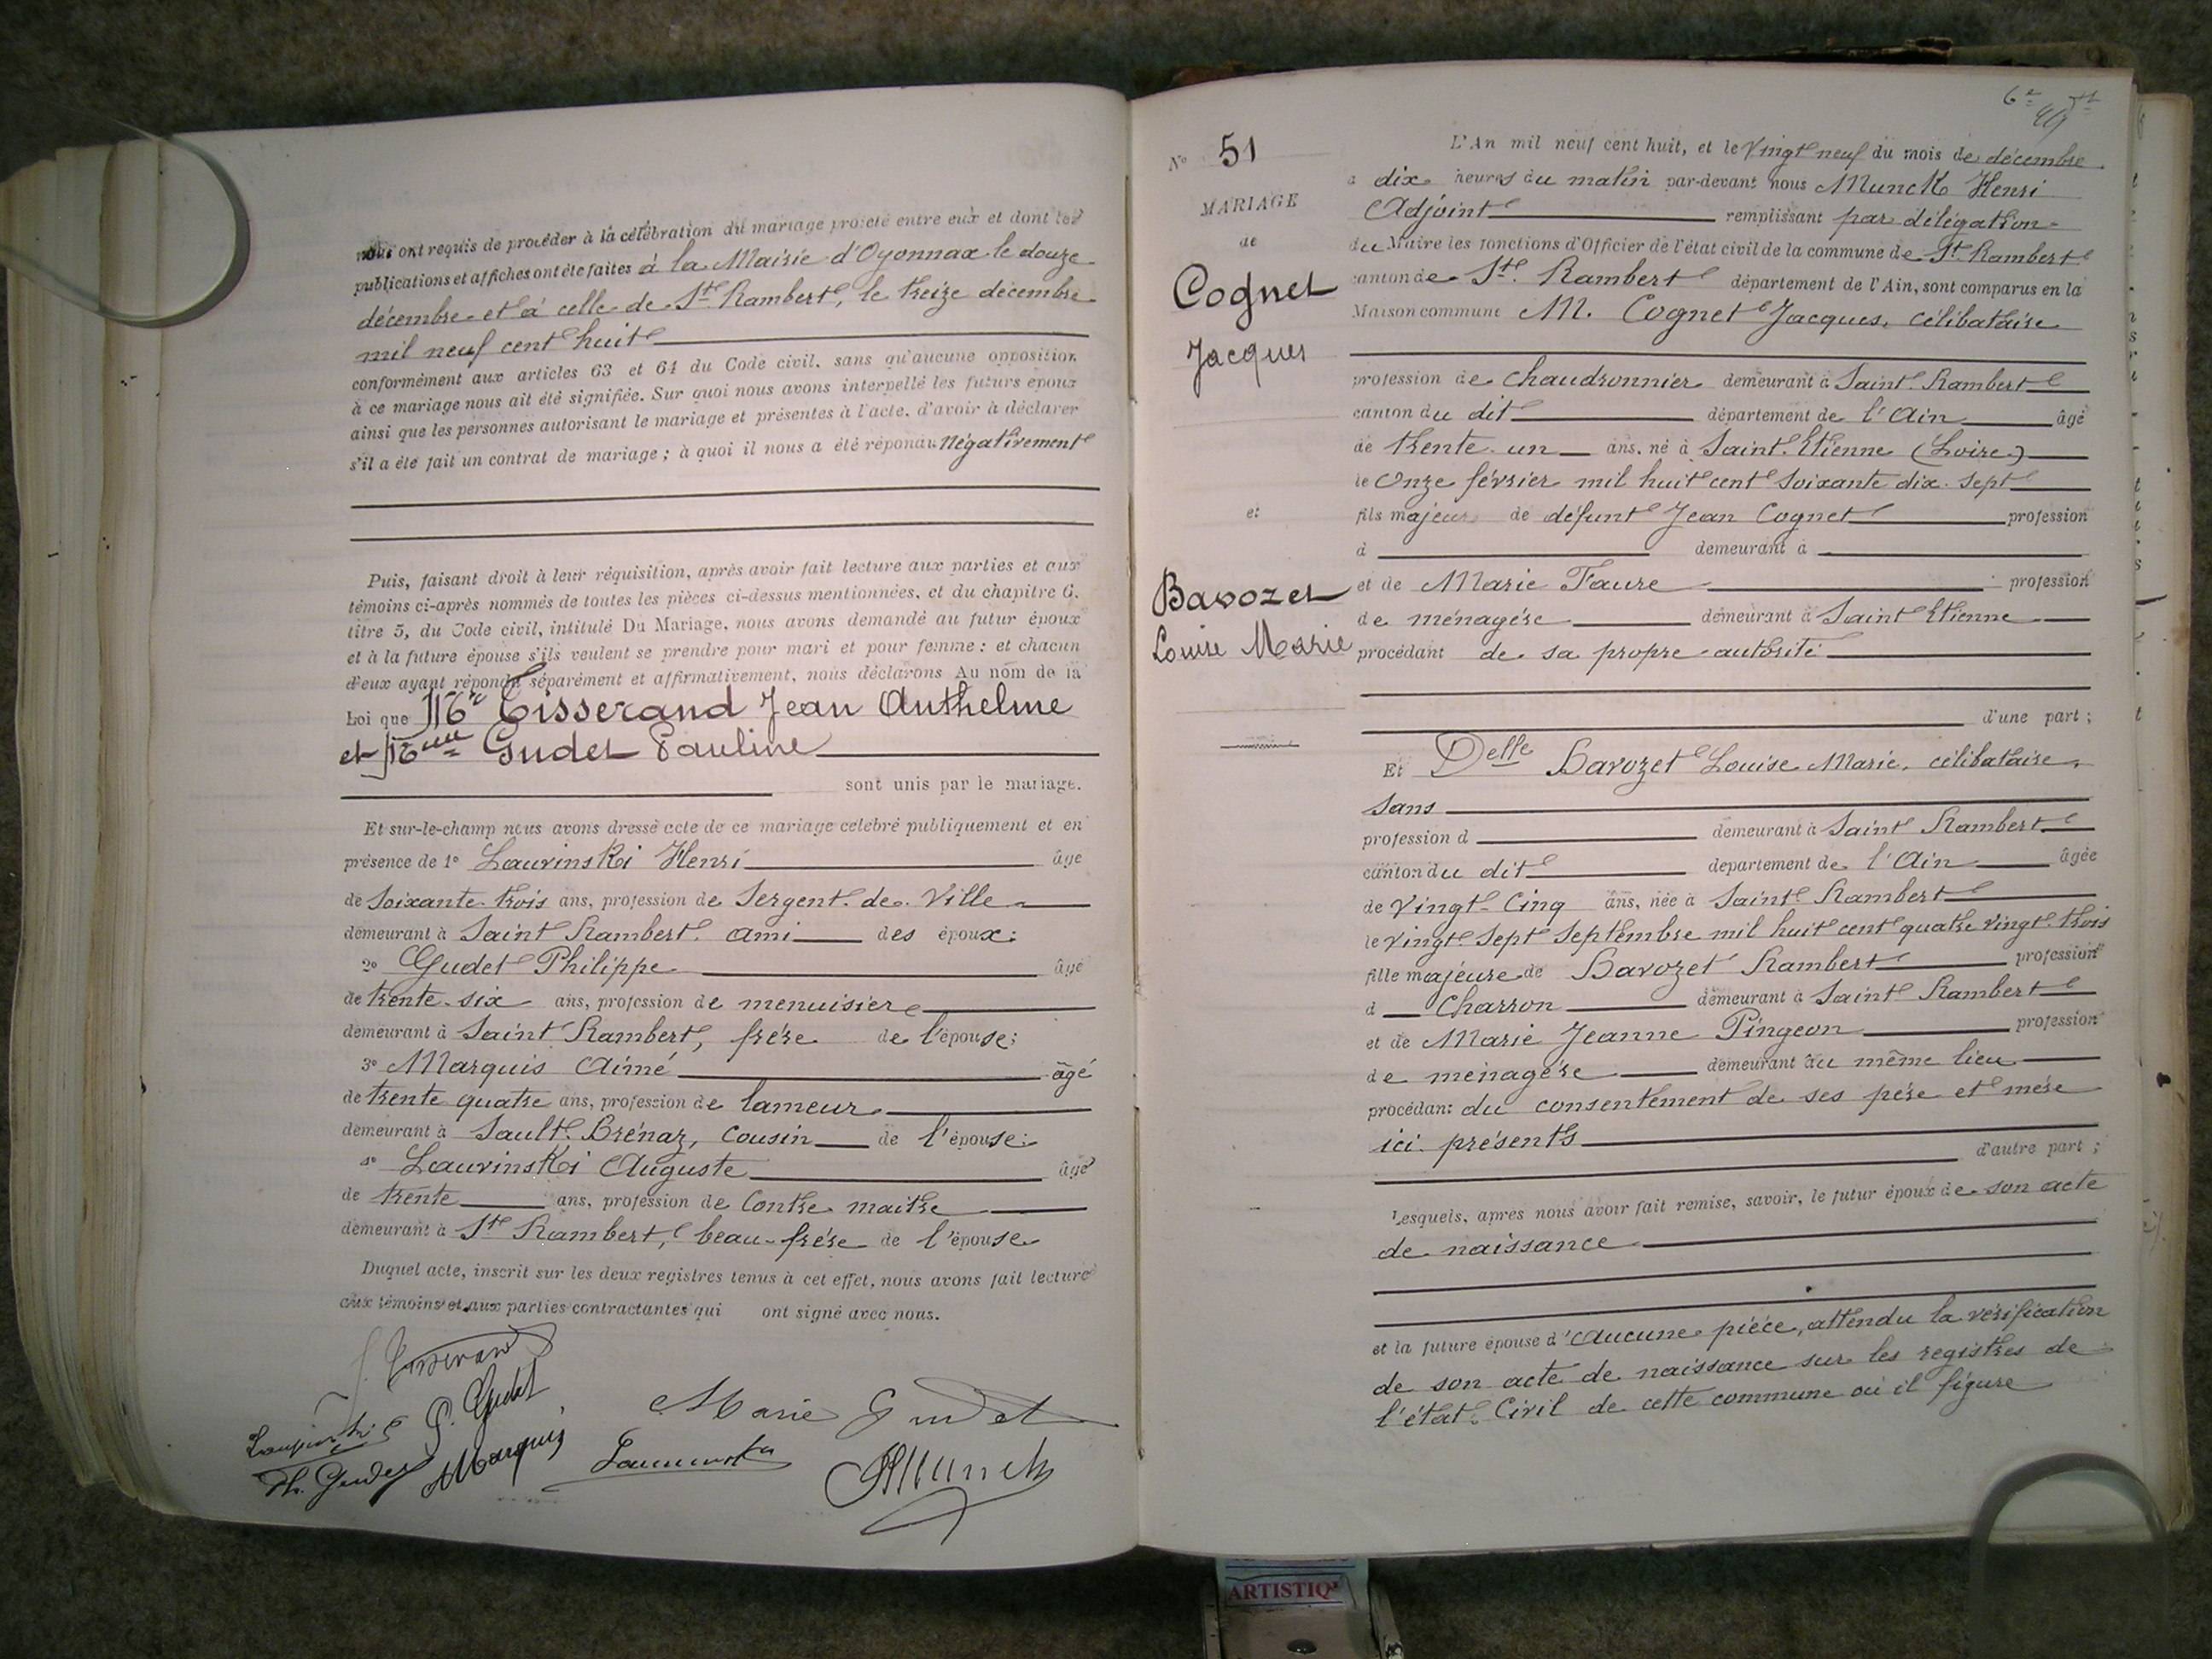 nous ont requis de procéder à la célébration du mariage projeté entre eux et dont les
publications et affiches ont été faites à la Mairie d'Oyonnax le douze
décembre et à celle de St Rambert, le treize décembre
mil neuf cent huit
conformément aux articles 63 et 64 du Code civil, sans qu'aucune opposition
à ce mariage nous ait été signifiée. Sur quoi nous avons interpellé les futurs époux
ainsi que les personnes autorisant le mariage et présentes à l'acte, d'avoir à déclarer
s'il a été fait un contrat de mariage ; à quoi il nous a été répondu négativement
Puis, faisant droit à leur réquisition, après avoir fait lecture aux parties et aux
témoins ci-après nommés de toutes les pièces ci-dessus mentionnées, et du chapitre 6,
titre 5, du Code civil, intitulé Du Mariage, nous avons demandé au futur époux
et à la future épouse s'ils veulent se prendre pour mari et pour femme ; et chacun
d'eux ayant répondu séparément et affirmativement, nous déclarons Au nom de la
Loi que Mr Tisserand Jean Anthelme
et Mme Gudet Pauline
sont unis par le mariage.
Et sur-le-champ nous avons dressé acte de ce mariage célébré publiquement et en
présence de 1° Lavrinski Henri âgé
de soixante-trois ans, profession de Sergent de Ville
demeurant à Saint Rambert, ami des époux ;
2° Gudet Philippe âgé
de trente-six ans, profession de menuisier
demeurant à Saint Rambert, frère de l'épouse ;
3° Marquis Aimé âgé
de trente quatre ans, profession de lameur
demeurant à Sault-Brénaz, cousin de l'épouse ;
4° Lavrinski Auguste âgé
de trente ans, profession de Contre maitre
demeurant à St Rambert, beau-frère de l'épouse
Duquel acte, inscrit sur les deux registres tenus à cet effet, nous avons fait lecture
aux témoins et aux parties contractantes qui ont signé avec nous.
J. Tisserand
P. Gudet
Marie Gudet
Ph. Gudet
A Marquis
HMunck
6e
No 51
MARIAGE
de
Cognet
Jacques
et
Bavozet
Louise Marie
L'An mil neuf cent huit, et le Vingt neuf du mois de décembre
à dix heures du matin par-devant nous Munck Henri
Adjoint remplissant par délégation
du Maire les fonctions d'Officier de l'état civil de la commune de St Rambert
canton de St. Rambert département de l'Ain, sont comparus en la
Maison commune M. Cognet Jacques, célibataire
profession de chaudronnier demeurant à Saint-Rambert
canton du dit département de l'Ain âgé
de trente-un ans, né à Saint-Etienne (Loire)
le Onze février mil huit cent soixante dix-sept
fils majeur de défunt Jean Cognet profession
d demeurant à
et de Marie Faure profession
de ménagère demeurant à Saint Etienne
procédant de sa propre autorité
d'une part ;
Et Delle Bavozet Louise Marie, célibataire,
sans
profession d demeurant à Saint Rambert
canton du dit département de l'Ain âgée
de Vingt-Cinq ans, née à Saint-Rambert
le vingt-sept septembre mil huit cent quatre vingt-trois
fille majeure de Bavozet Rambert profession
d charron demeurant à Saint Rambert
et de Marie Jeanne Pingeon profession
de ménagère demeurant au même lieu
procédant du consentement de ses père et mère
ici présents
d'autre part ;
Lesquels, après nous avoir fait remise, savoir, le futur époux de son acte
de naissance
et la future épouse d'aucune pièce, attendu la vérification
de son acte de naissance sur les registres de
l'état-Civil de cette commune où il figure
ARTISTIQ